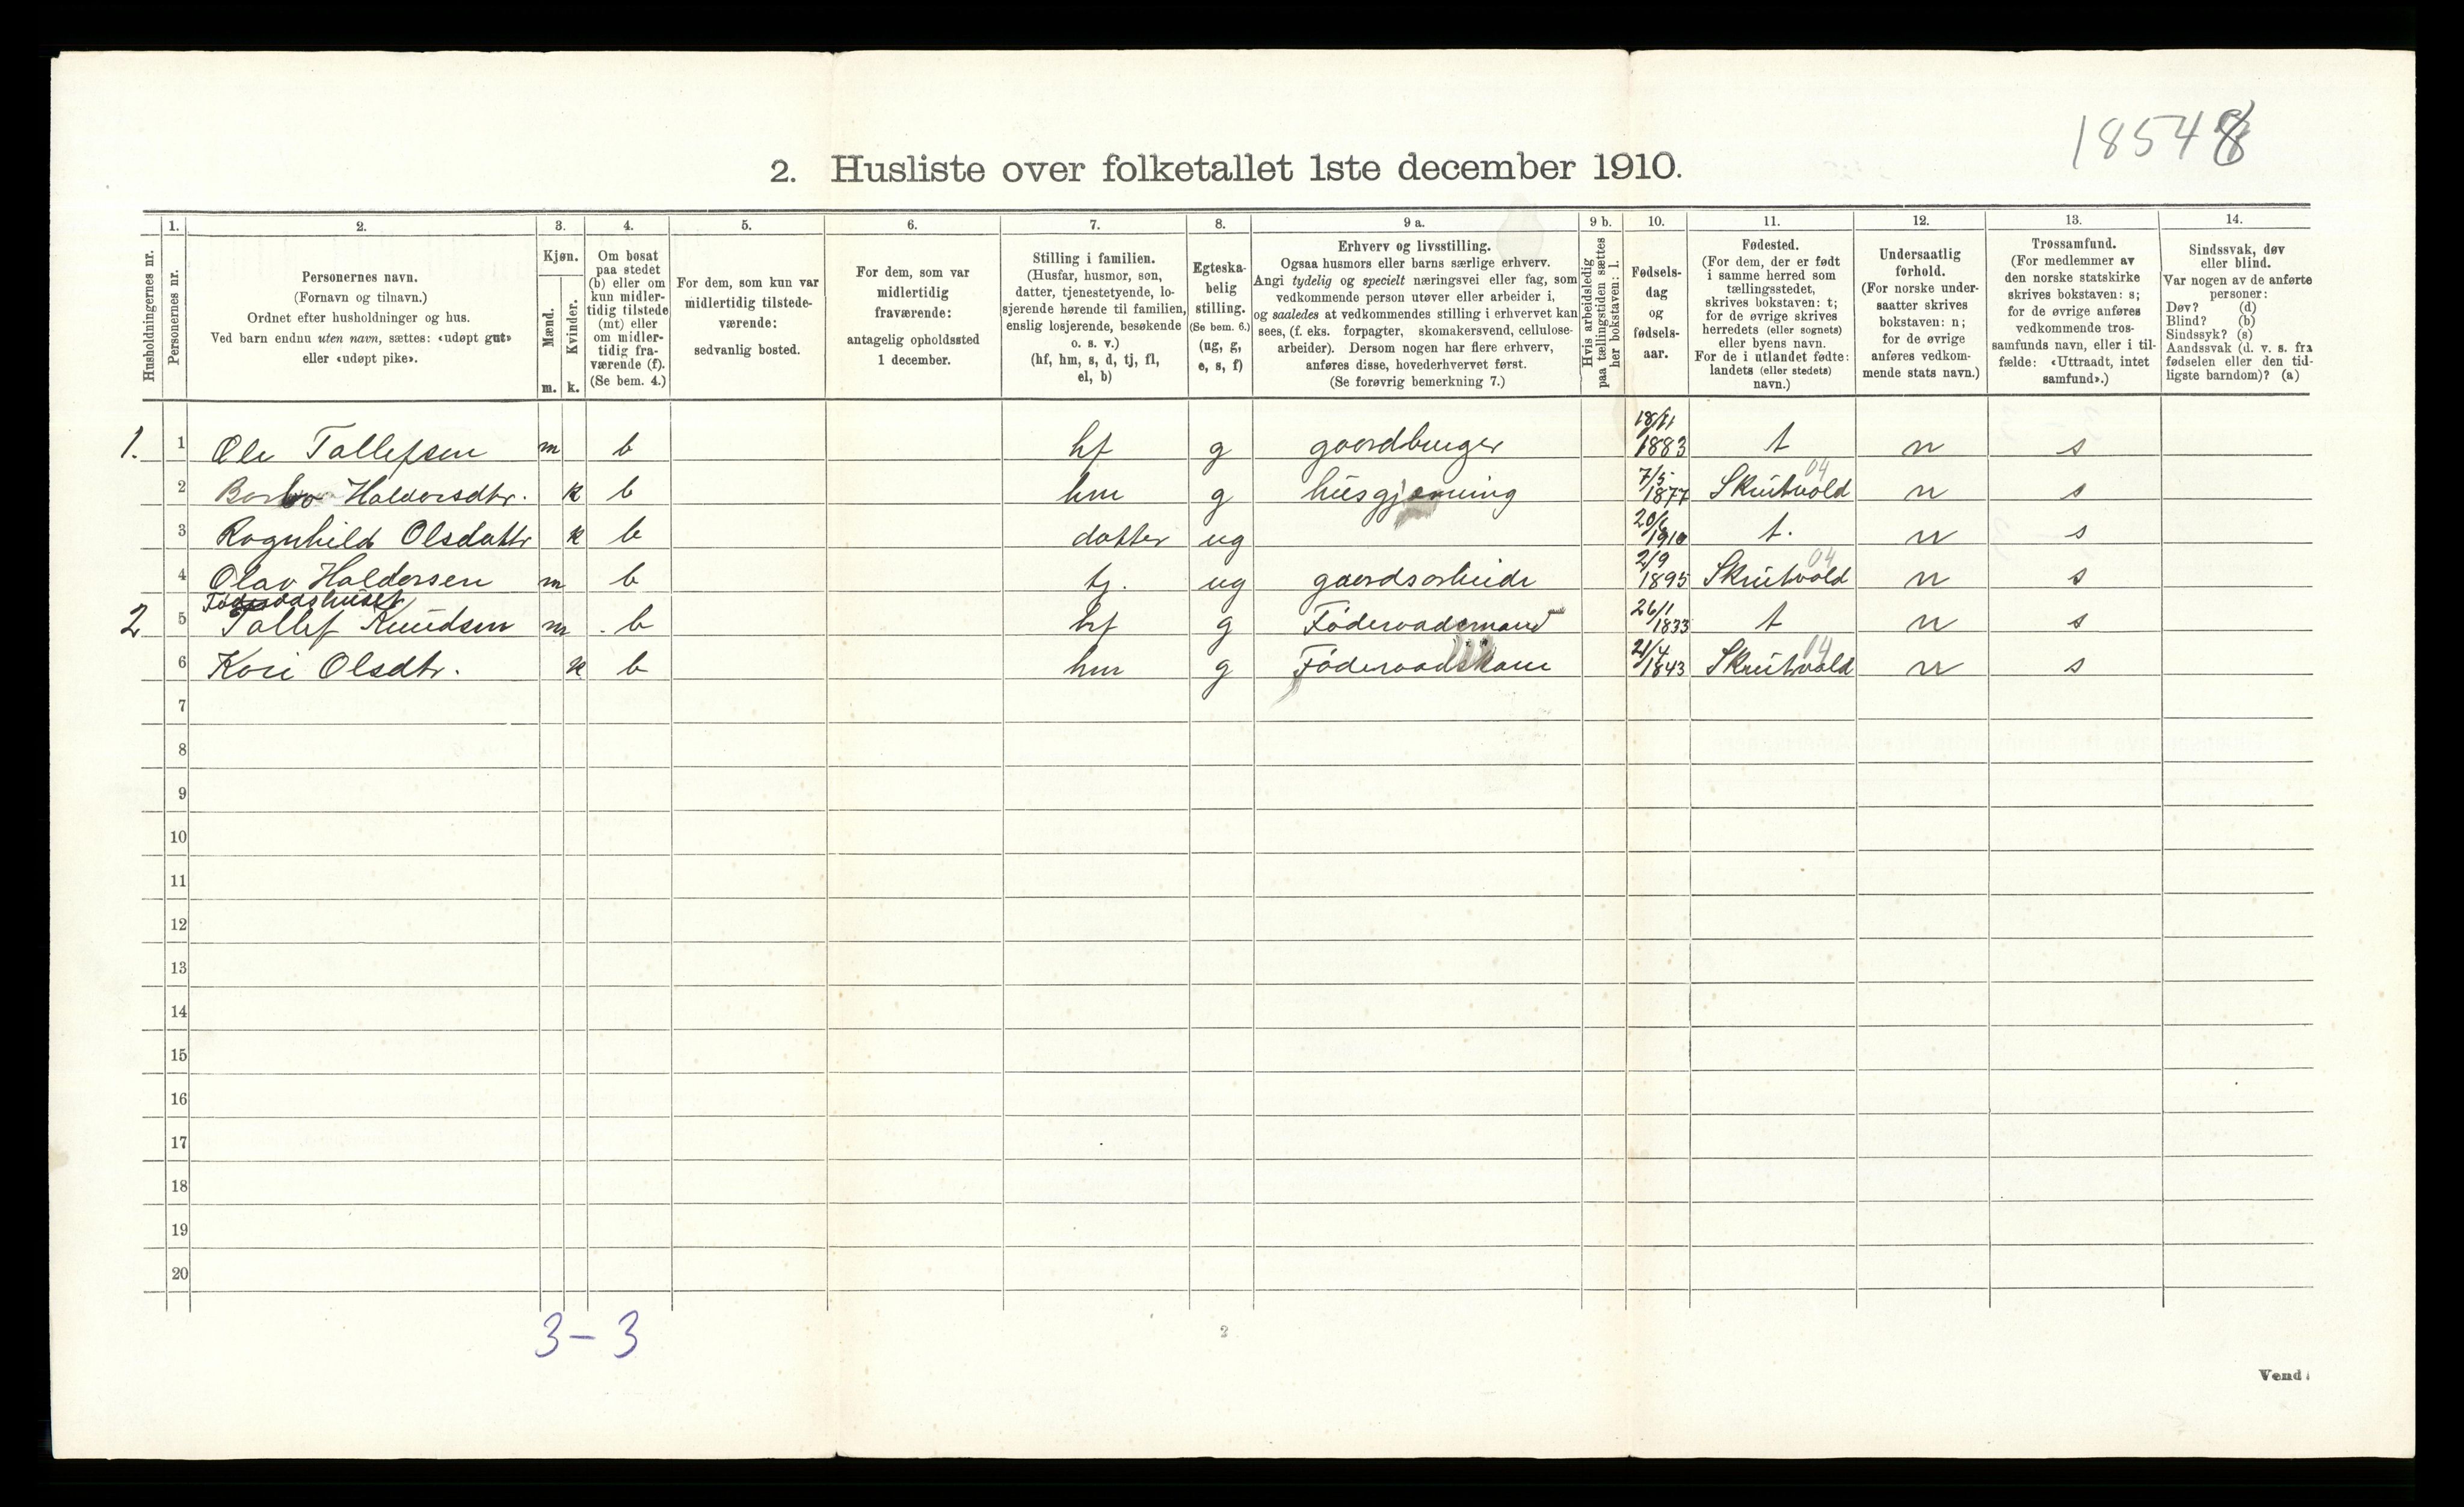 18548
2. Husliste over folketallet 1ste december 1910.
Husholdningernes nr.
1.
Personernes nr.
2.
Personernes navn.
(Fornavn og tilnavn.)
Ordnet efter husholdninger og hus.
Ved barn endnu uten navn, sættes: «udøpt gut»
eller «udøpt pike».
3.
Kjøn.
Mænd.
m.
Kvinder.
k.
4.
Om bosat
paa stedet
(b) eller om
kun midler-
tidig tilstede
(mt) eller
om midler-
tidig fra-
værende (f).
(Se bem. 4.)
5.
For dem, som kun var
midlertidig tilstede-
værende:
sedvanlig bosted.
6.
For dem, som var
midlertidig
fraværende:
antagelig opholdssted
1 december.
7.
Stilling i familien.
(Husfar, husmor, søn,
datter, tjenestetyende, lo-
sjerende hørende til familien,
enslig losjerende, besøkende
o. s. v.)
(hf, hm, s, d, tj, fl,
el, b)
8.
Egteska-
belig
stilling.
(Se bem. 6.)
(ug, g,
e, s, f)
9 a.
Erhverv og livsstilling.
Ogsaa husmors eller barns særlige erhverv.
Angi tydelig og specielt næringsvei eller fag, som
vedkommende person utøver eller arbeider i,
og saaledes at vedkommendes stilling i erhvervet kan
sees, (f. eks. forpagter, skomakersvend, cellulose-
arbeider). Dersom nogen har flere erhverv,
anføres disse, hovederhvervet først.
(Se forøvrig bemerkning 7.)
9 b.
Hvis arbeidsledig
paa tællingstiden sættes
her bokstaven: l.
10.
Fødsels-
dag
og
fødsels-
aar.
11.
Fødested.
(For dem, der er født
i samme herred som
tællingsstedet,
skrives bokstaven: t;
for de øvrige skrives
herredets (eller sognets)
eller byens navn.
For de i utlandet fødte:
landets (eller stedets)
navn.)
12.
Undersaatlig
forhold.
(For norske under-
saatter skrives
bokstaven: n;
for de øvrige
anføres vedkom-
mende stats navn.)
13.
Trossamfund.
(For medlemmer av
den norske statskirke
skrives bokstaven: s;
for de øvrige anføres
vedkommende tros-
samfunds navn, eller i til-
fælde: «Uttraadt, intet
samfund».)
14.
Sindssvak, døv
eller blind.
Var nogen av de anførte
personer:
Døv? (d)
Blind? (b)
Sindssyk? (s)
Aandssvak (d. v. s. fra
fødselen eller den tid-
ligste barndom)? (a)
1. 1 Ole Tallefsen m b hf g gaardbruger 18/11 1883 t n s
2 Barbo Haldorsdtr. k b hm g husgjerning 7/5 1877 Skrutvold 04 n s
3 Ragnhild Olsdattr k b datter ug 20/6 1910 t. n s
4 Olav Haldorsen m b tj. ug gaardsarbeide 2/9 1895 Skrutvold 04 n s
Føderaadshuset
2 5 Tallef Knudsen m b hf g Føderaadsmand 26/1 1833 t n s
6 Kari Olsdtr. k b hm g Føderaadskone 21/4 1843 Skrutvold 04 n s
7
8
9
10
11
12
13
14
15
16
17
18
19
20
3 - 3
2
Vend!